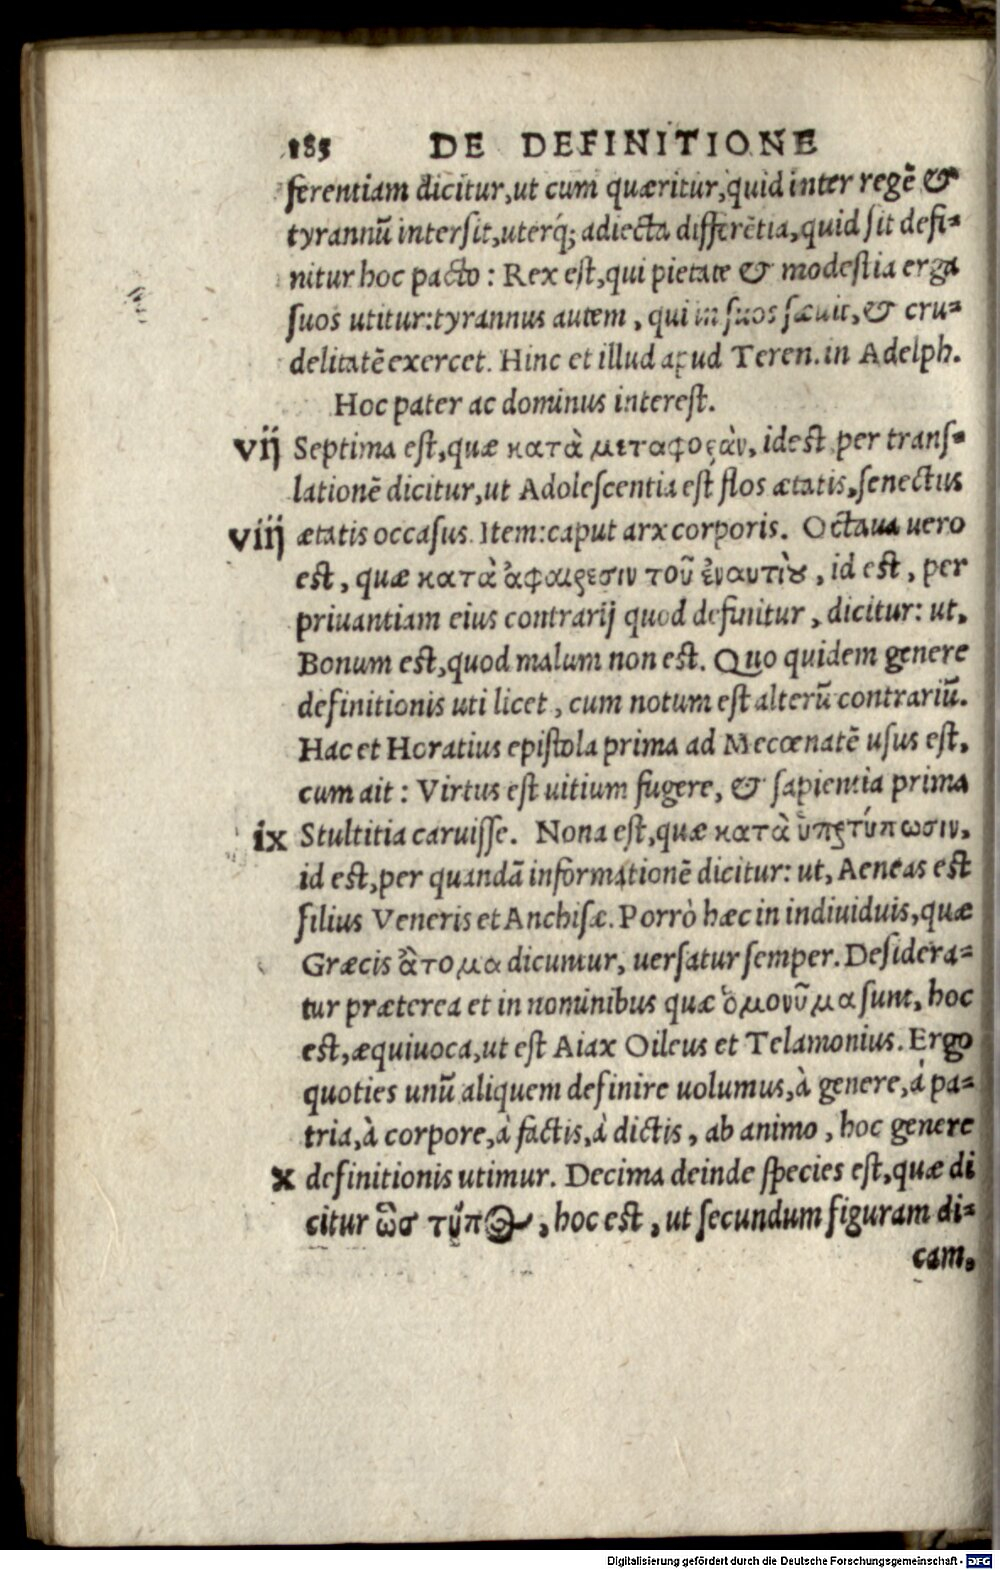 185 DE DEFINITIONE
ferentiam dicitur, ut cum quæritur, quid inter regẽ &
tyrannũ intersit, uterq́; adiecta differẽtia, quid sit defi-
nitur hoc pacto: Rex est, qui pietate & modestia erga
suos utitur: tyrannus autem, qui in suos sæuit, & cru-
delitatẽ exercet. Hinc et illud apud Teren. in Adelph.
Hoc pater ac dominus interest.
vij Septima est, quæ κατὰ μεταφορὰν, id est per trans-
lationẽ dicitur, ut Adolescentia est flos ætatis, senectus
viij ætatis occasus. Item: caput arx corporis. Octaua uero
est, quæ κατὰ ἀφαιρεσιν τοῦ ἐναυτὶȣ, id est, per
priuantiam eius contrarij quod definitur, dicitur: ut,
Bonum est, quod malum non est. Quo quidem genere
definitionis uti licet, cum notum est alterũ contrariũ.
Hac et Horatius epistola prima ad Mecœnatẽ usus est,
cum ait: Virtus est uitium fugere, & sapientia prima
ix Stultitia caruisse. Nona est, quæ κατὰ ὑποτύπωσιν,
id est, per quandã informationẽ dicitur: ut, Aeneas est
filius Veneris et Anchisæ. Porrò hæc in indiuiduis, quæ
Græcis ἄτομα dicuntur, uersatur semper. Desidera-
tur præterea et in nominibus quæ ὁμονῦμα sunt, hoc
est, æquiuoca, ut est Aiax Oileus et Telamonius. Ergo
quoties unũ aliquem definire uolumus, à genere, à pa-
tria, à corpore, à factis, à dictis, ab animo, hoc genere
x definitionis utimur. Decima deinde species est, quæ di
citur ὣσ τύπος, hoc est, ut secundum figuram di-
cam,
Digitalisierung gefördert durch die Deutsche Forschungsgemeinschaft - DFG